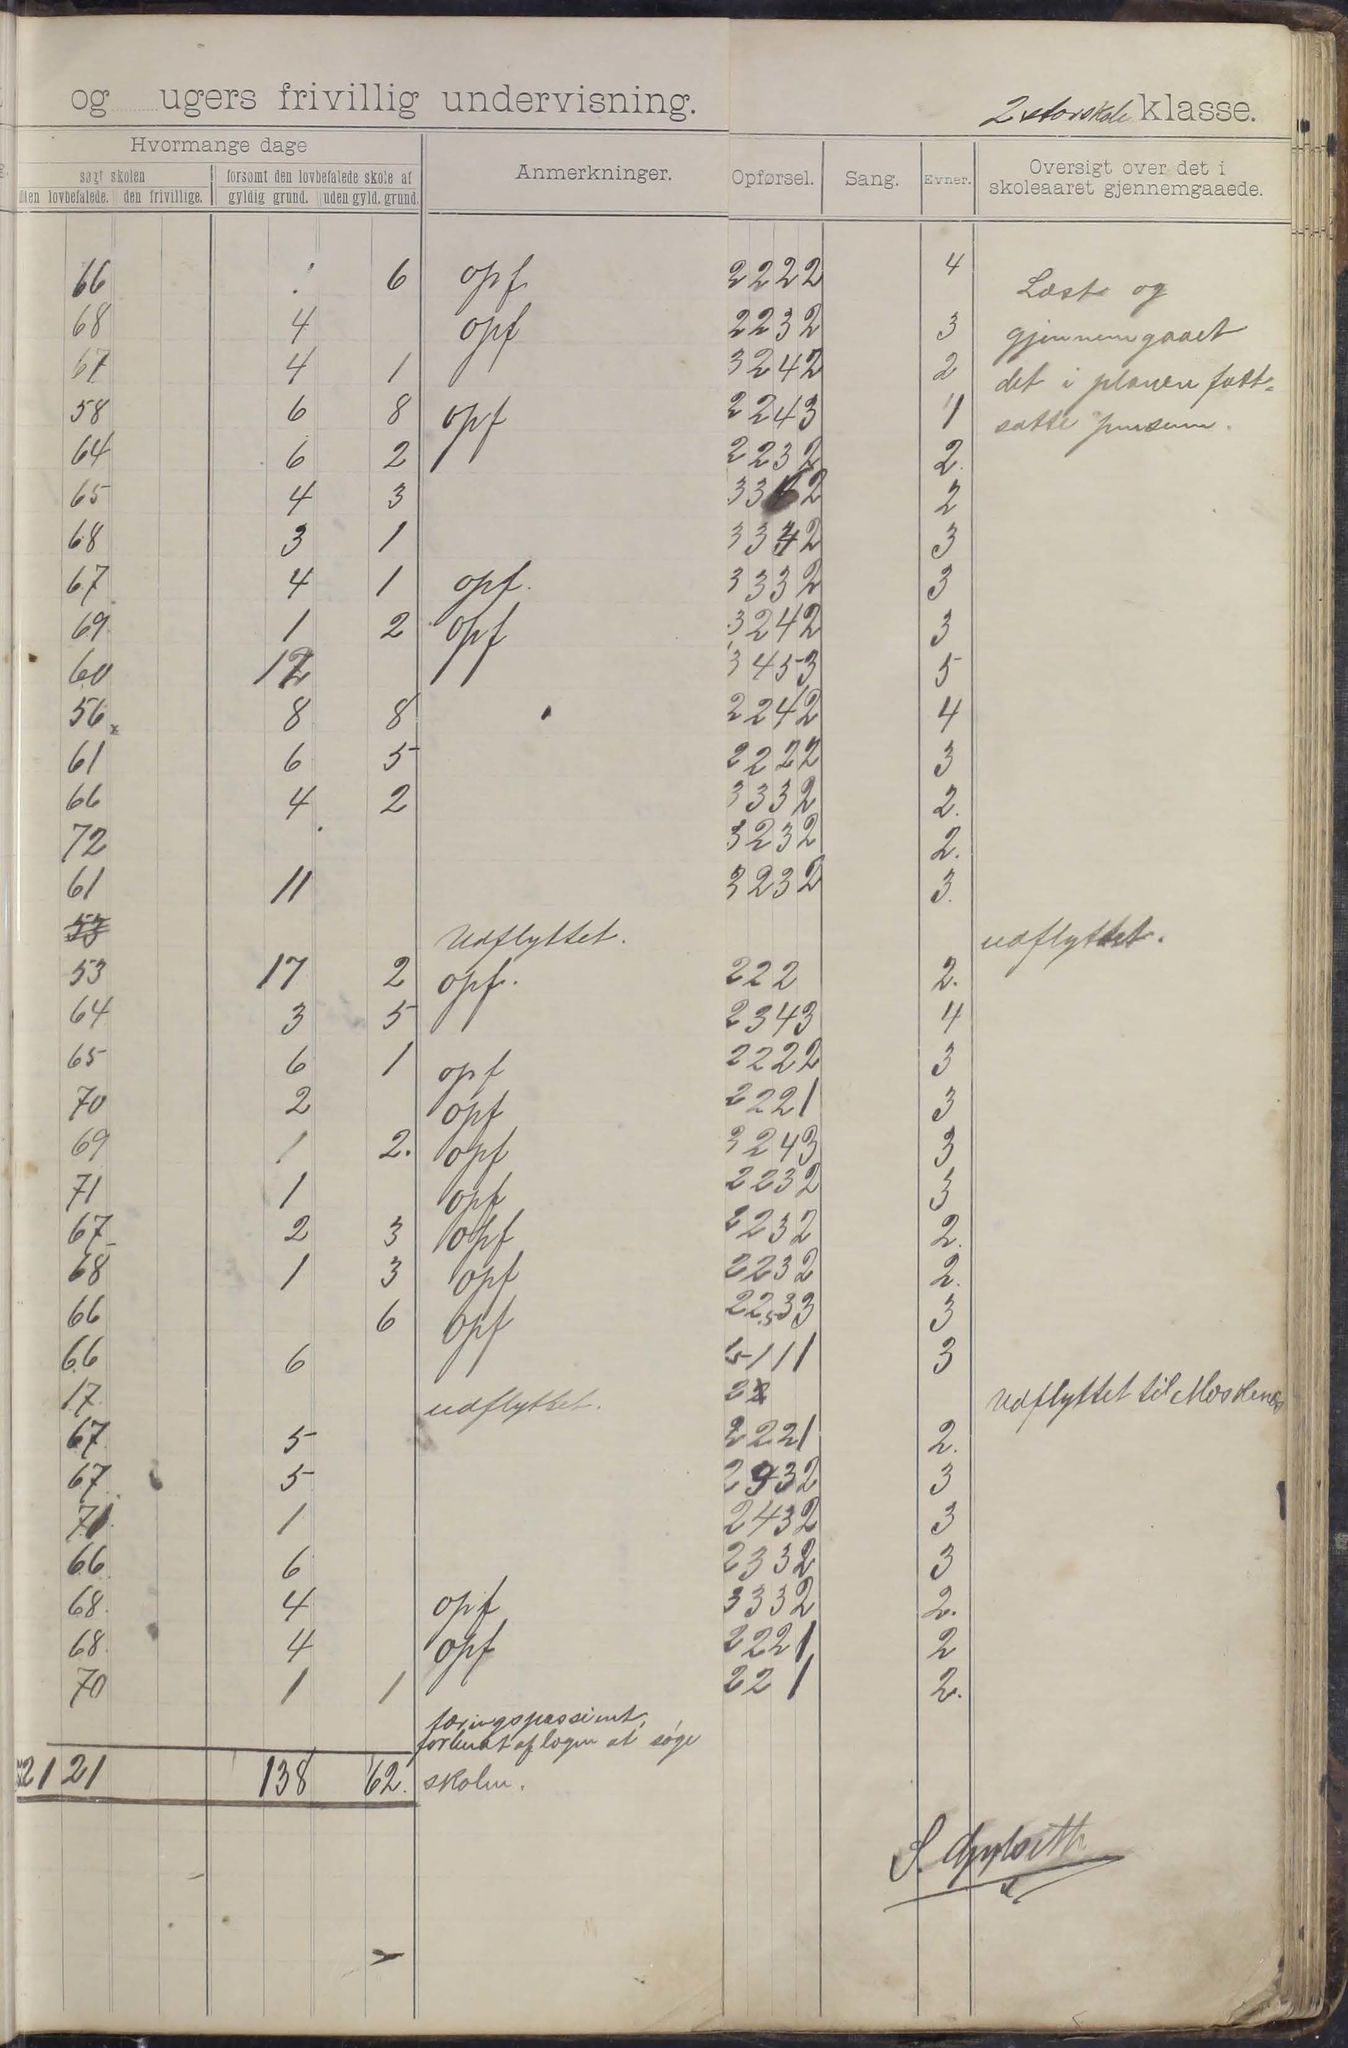 og ugers frivillig undervisning. 2 storskole klasse.
Hvormange dage
søgt skolen forsømt den lovbefalede skole af
den lovbefalede. den frivillige. gyldig grund. uden gyld. grund.
Anmerkninger. Opførsel. Sang. Evner.
Oversigt over det i
skoleaaret gjennemgaaede.
66 6 opf 2222 4 Læst og
68 4 opf 2232 3 gjennemgaaet
67 4 1 3242 2 det i planen fast-
58 6 8 opf 2243 1 satte pensum.
64 6 2 2232 2.
65 4 3 33 2 2
68 3 1 3342 3
67 4 1 opf. 3332 3
69 1 2 opf 3242 3
60 12 3453 5
56 8 8 2242 4
61 6 5 2222 3
66 4 2 3332 2.
72 3232 2.
61 11 3232 3.
53 Udflyttet. udflyttet.
53 17 2 opf. 222 2.
64 3 5 2343 4
65 6 1 opf 2222 3
70 2 opf 2221 3
69 1 2. opf 3243 3
71 1 opf 2232 3
67 2 3 opf 2232 2.
68 1 3 opf 2232 2.
66 6 opf 2233 3
66 6 5111 3
17. udflyttet. 22 Udflyttet til Moskenes
67 5 2221 2.
67 5 2432 3
71 1 2432 3
66 6 2332 3
68. 4 opf 3332 2.
68. 4 opf 2221 2
70 1 1 22 1 2.
af at søge
2121 138 62. skolen.
S.